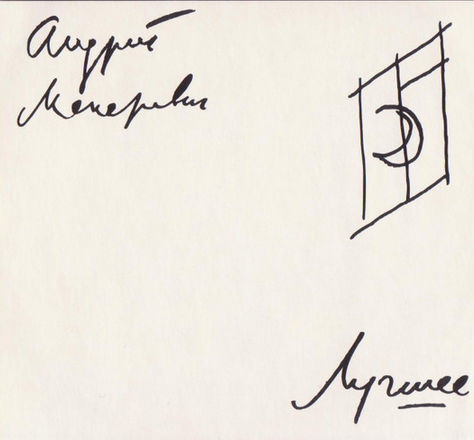 Андрей
Макаревич
Лучшее